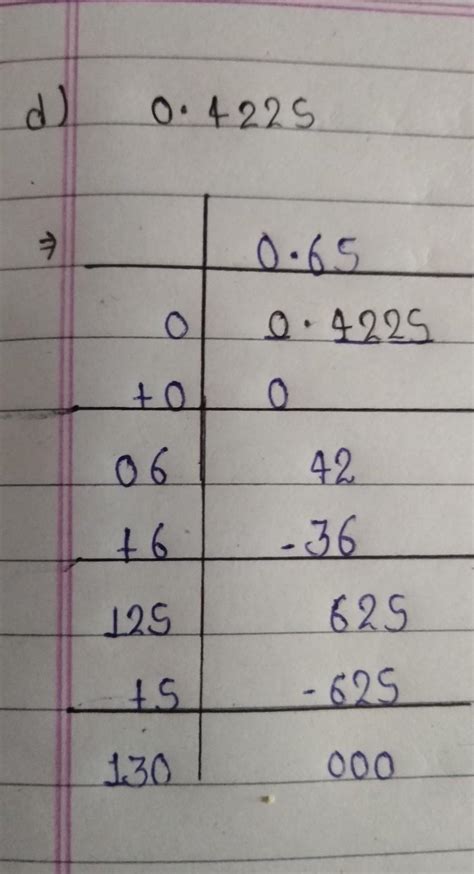 d) 0.4225
⇒ 0.65
0 0.4225
+0 0
06 42
+6 -36
125 625
+5 -625
130 000